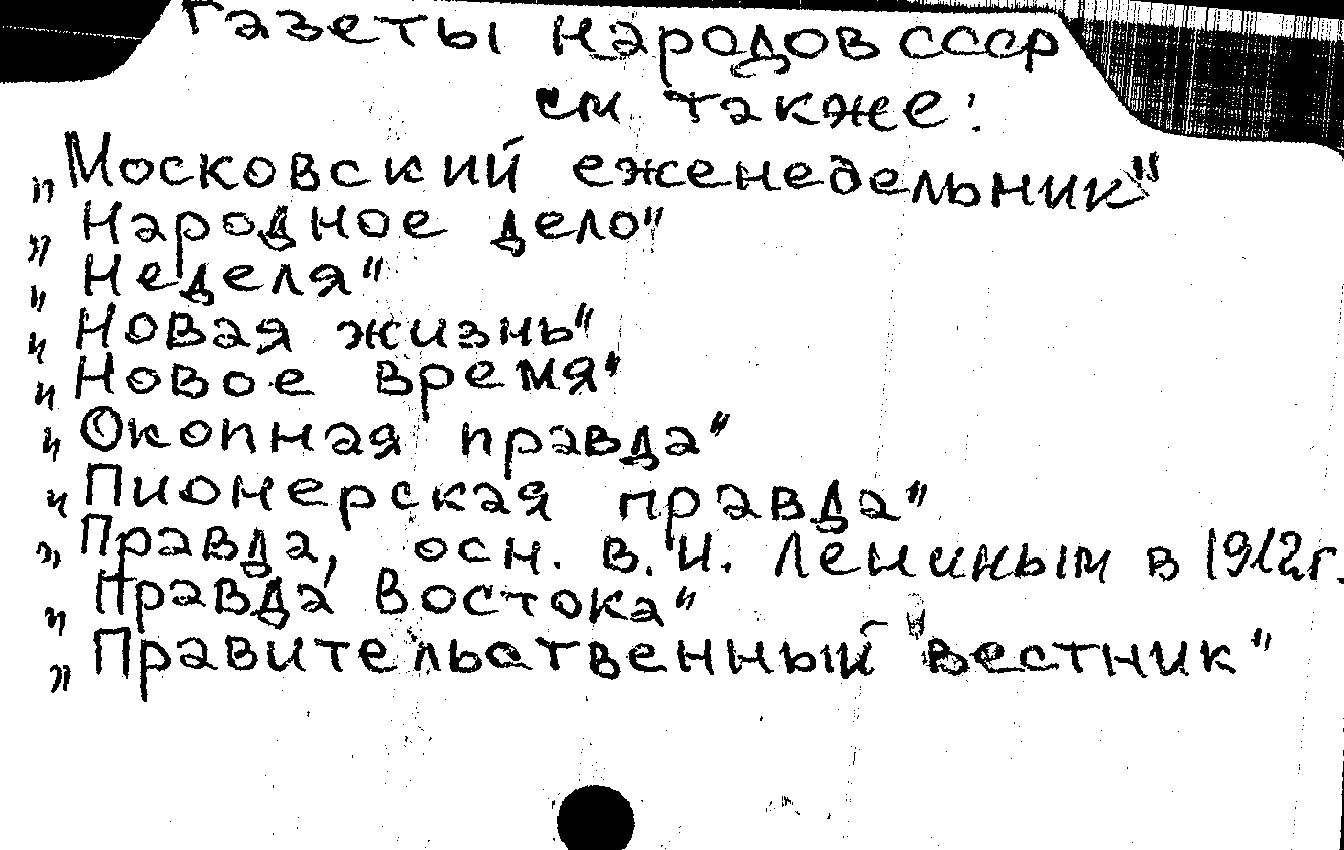 Газеты народов СССР
см также:
„Московский еженедельник"
„Народное дело"
„Неделя"
„Новая жизнь"
„Новое время"
„Окопная правда"
„Пионерская правда"
„Правда, осн. В. И. Лениным в 1912г.
„Правда Востока"
„Правительственный вестник"